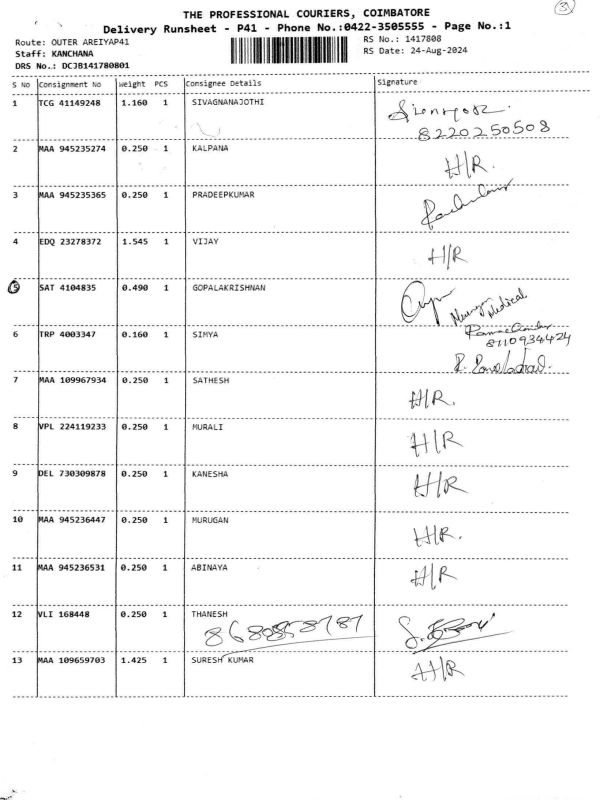 3
THE PROFESSIONAL COURIERS, COIMBATORE
Delivery Runsheet - P41 - Phone No.:0422-3505555 - Page No.:1
Route: OUTER AREIYAP41 RS No.: 1417808
Staff: KANCHANA RS Date: 24-Aug-2024
DRS No.: DCJB141780801
S No Consignment No Weight PCS Consignee Details Signature
1 TCG 41149248 1.160 1 SIVAGNANAJOTHI
8220250508
2 MAA 945235274 0.250 1 KALPANA H/R.
3 MAA 945235365 0.250 1 PRADEEPKUMAR
4 EDQ 23278372 1.545 1 VIJAY H/R
5 SAT 4104835 0.490 1 GOPALAKRISHNAN
Medical
6 TRP 4003347 0.160 1 SIMYA
8110934424
7 MAA 109967934 0.250 1 SATHESH H/R.
8 VPL 224119233 0.250 1 MURALI H/R
9 DEL 730309878 0.250 1 KANESHA H/R
10 MAA 945236447 0.250 1 MURUGAN H/R.
11 MAA 945236531 0.250 1 ABINAYA H/R
12 VLI 168448 0.250 1 THANESH
13 MAA 109659703 1.425 1 SURESH KUMAR H/R